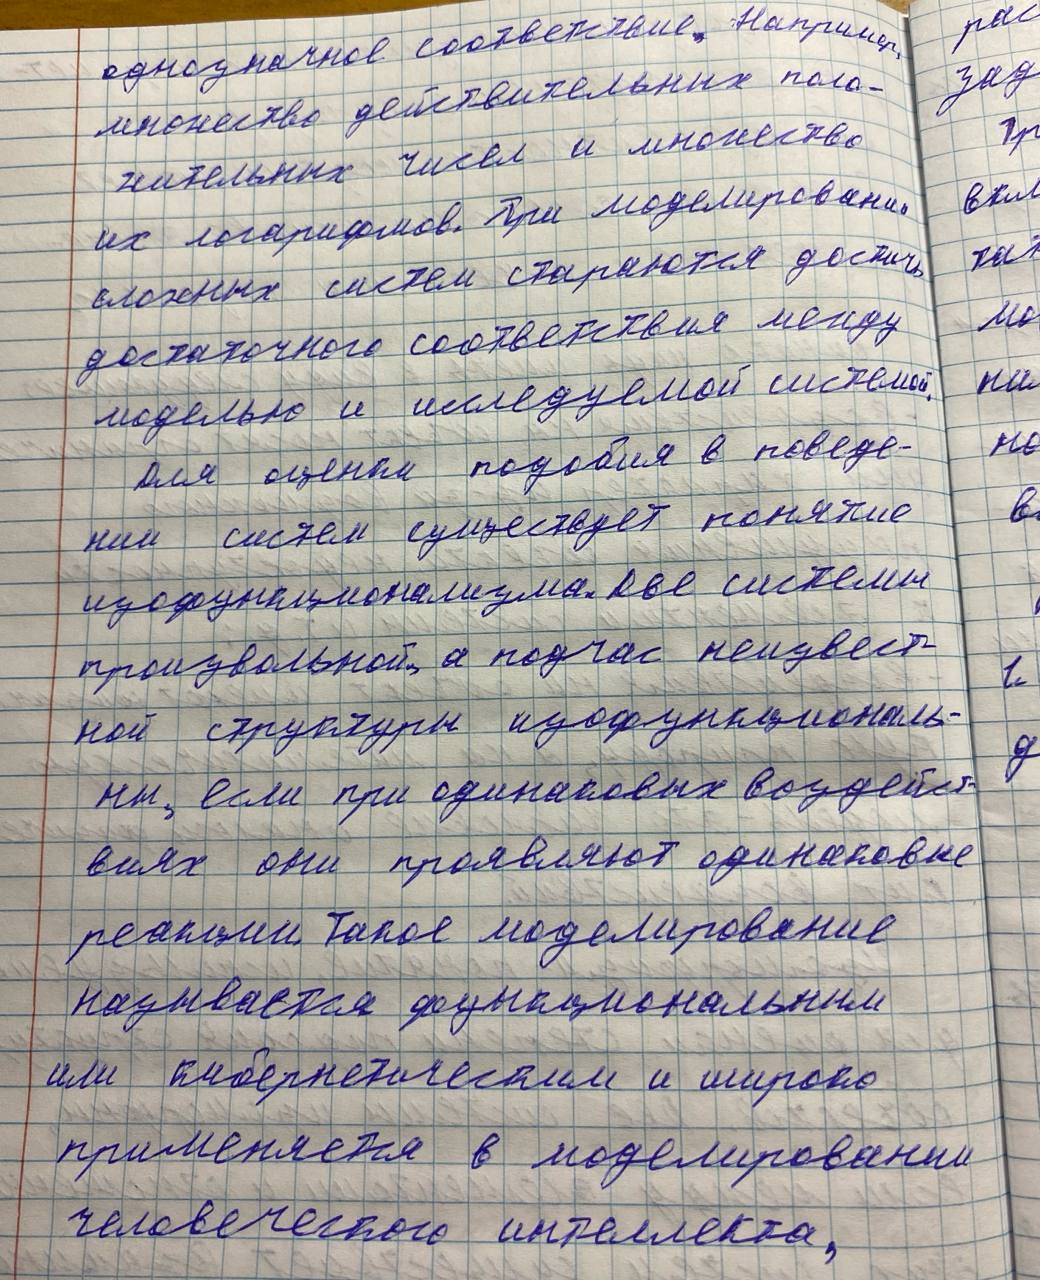 однозначное соответствие. Например,
множество действительных поло-
жительных чисел и множество
их логарифмов. При моделировании
сложных систем стараются достичь
достаточного соответствия между
моделью и исследуемой системой.
Для оценки подобия в поведе-
нии систем существует понятие
изофункционализма. Две системы
произвольной, а подчас неизвест-
ной структуры изофункциональ-
ны, если при одинаковых воздейст-
виях они проявляют одинаковые
реакции. Такое моделирование
называется функциональным
или кибернетическим и широко
применяется в моделировании
человеческого интеллекта,
рас
зад
Пр
вкл
тат
мо
ни
но
в
1.
д